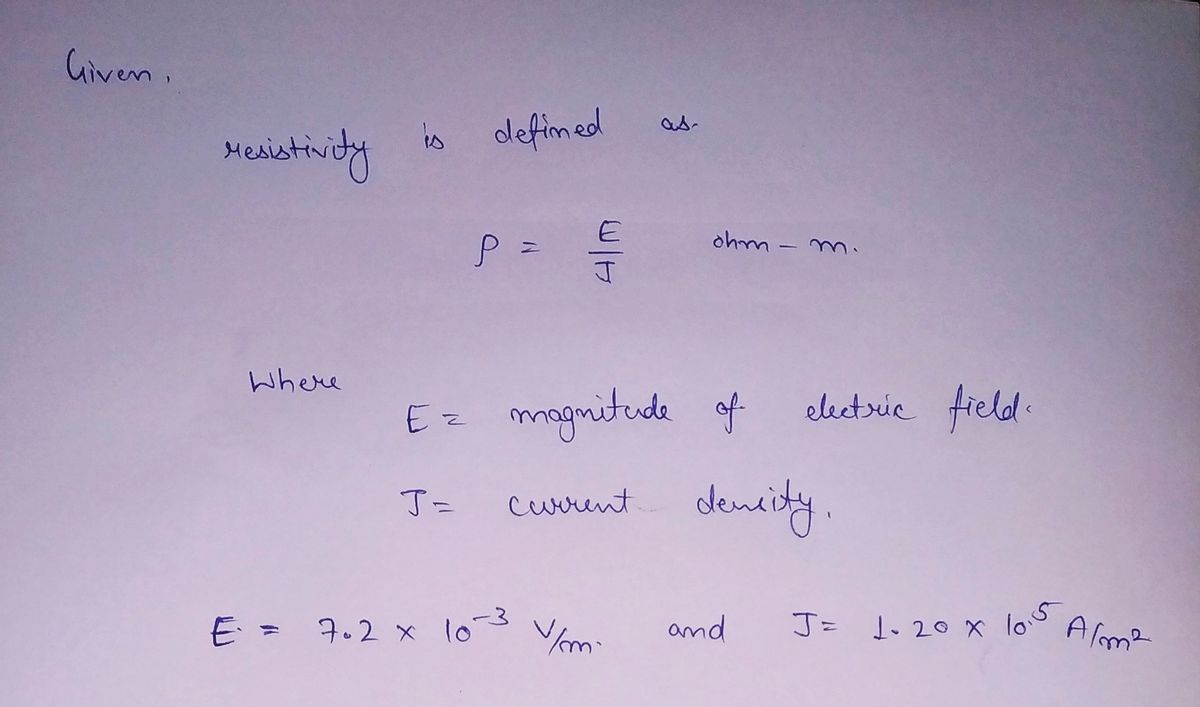 Given,
resistivity is defined as-
ρ = E/J ohm - m.
Where
E = magnitude of electric field.
J = current density.
E = 7.2 × 10⁻³ V/m. and J = 1.20 × 10⁵ A/m²